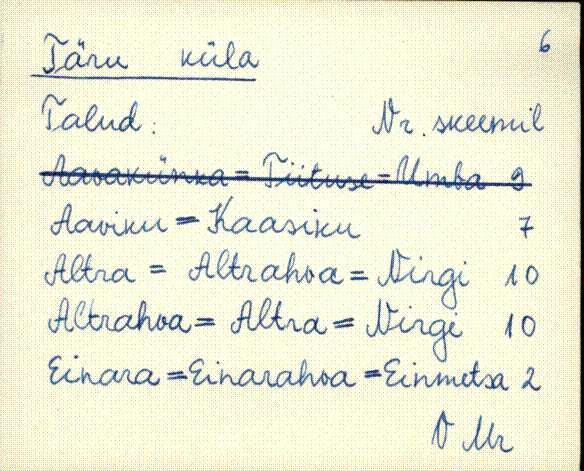 6
Täru küla
Talud: Nr. skeemil
Aavakünka = Tiituse = Umba 9
Aaviku = Kaasiku 7
Altra = Altrahoa = Nirgi 10
Altrahoa = Altra = Nirgi 10
Einara = Einarahoa = Einmetsa 2
V Mr